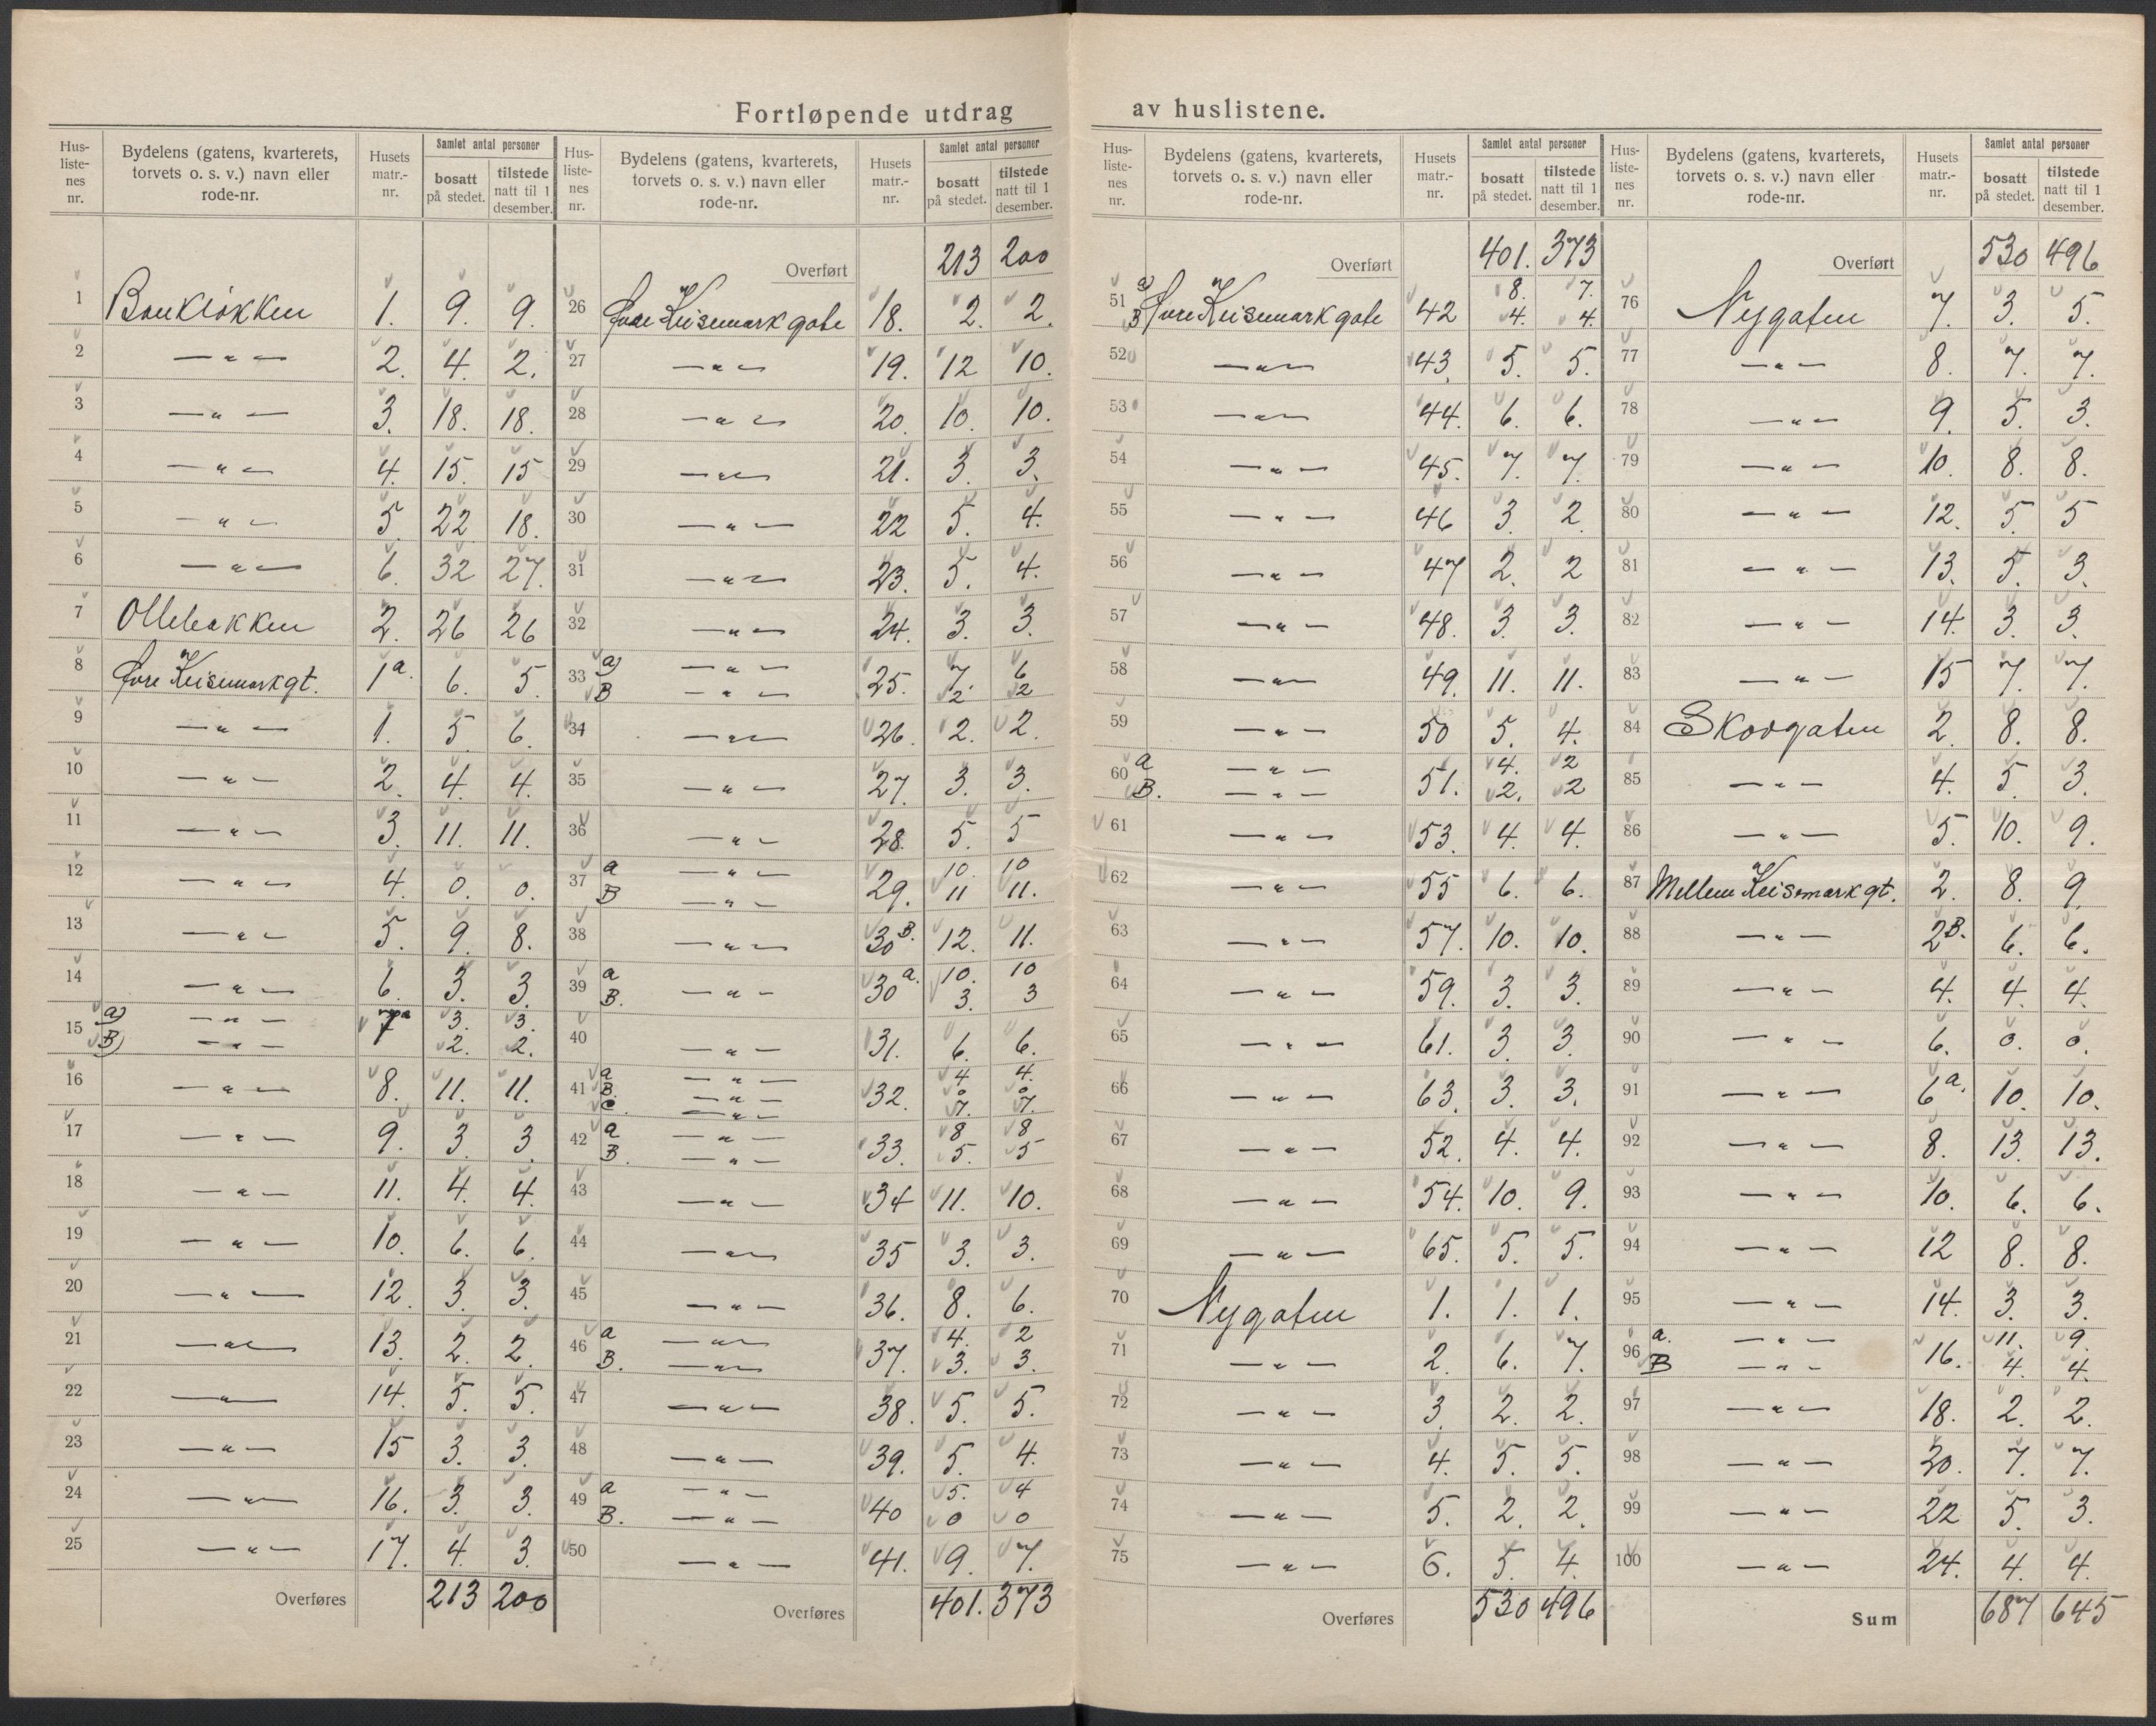 Fortløpende utdrag av huslistene.
Hus-listenes nr. | Bydelens (gatens, kvarterets, torvets o. s. v.) navn eller rode-nr. | Husets matr.-nr. | Samlet antal personer | bosatt på stedet. | tilstede natt til 1 desember.
1 Bankløkken 1. 9. 9.
2 — „ — 2. 4. 2.
3 — „ — 3. 18. 18.
4 — „ — 4. 15. 15
5 — „ — 5 22 18.
6 — „ — 6. 32 27.
7 Ollebakken 2. 26 26
8 Øvre Keisemarkgt. 1a. 6. 5.
9 — „ — 1. 5 6.
10 — „ — 2. 4. 4.
11 — „ — 3. 11. 11.
12 — „ — 4. 0. 0.
13 — „ — 5. 9. 8.
14 — „ — 6. 3. 3.
15 a) — „ — 7 3. 3.
B) — „ — 2. 2.
16 — „ — 8. 11. 11.
17 — „ — 9. 3. 3.
18 — „ — 11. 4. 4.
19 — „ — 10. 6. 6.
20 — „ — 12. 3. 3.
21 — „ — 13. 2. 2.
22 — „ — 14. 5. 5.
23 — „ — 15 3. 3.
24 — „ — 16. 3. 3.
25 — „ — 17. 4. 3.
Overføres 213 200
Hus-listenes nr. | Bydelens (gatens, kvarterets, torvets o. s. v.) navn eller rode-nr. | Husets matr.-nr. | Samlet antal personer | bosatt på stedet. | tilstede natt til 1 desember.
Overført 213 200
26 Øvre Keisemarkgate 18. 2. 2.
27 — „ — 19. 12 10.
28 — „ — 20. 10. 10.
29 — „ — 21. 3. 3.
30 — „ — 22 5. 4.
31 — „ — 23. 5. 4.
32 — „ — 24. 3. 3.
33 a) — „ — 25. 7. 6
B — „ — 2. 2
34 — „ — 26. 2. 2.
35 — „ — 27. 3. 3.
36 — „ — 28. 5. 5
37 a — „ — 29. 10. 10
B — „ — 11 11.
38 — „ — 30B. 12. 11.
39 a — „ — 30a. 10. 10
B. 3. 3
40 — „ — 31. 6. 6.
41 a — „ — 32. 4 4.
B. — „ — 0 0
C. — „ — 7. 7.
42 a — „ — 33. 8 8
B. — „ — 5. 5
43 — „ — 34 11. 10.
44 — „ — 35 3. 3.
45 — „ — 36. 8. 6.
46 a — „ — 37. 4. 2
B. — „ — 3. 3.
47 — „ — 38. 5. 5.
48 — „ — 39. 5. 4.
49 a — „ — 40 5. 4
B. — „ — 0 0
50 — „ — 41. 9. 7.
Overføres 401. 373
Hus-listenes nr. | Bydelens (gatens, kvarterets, torvets o. s. v.) navn eller rode-nr. | Husets matr.-nr. | Samlet antal personer | bosatt på stedet. | tilstede natt til 1 desember.
Overført 401. 373
51 a) Øvre Keisemarkgate 42 8. 7.
B 4. 4.
52 — „ — 43. 5. 5.
53 — „ — 44. 6. 6.
54 — „ — 45. 7. 7.
55 — „ — 46 3. 2.
56 — „ — 47 2. 2
57 — „ — 48. 3. 3.
58 — „ — 49. 11. 11.
59 — „ — 50 5. 4.
60 a — „ — 51. 4. 2
B. — „ — 2. 2
61 — „ — 53. 4. 4.
62 — „ — 55 6. 6.
63 — „ — 57. 10. 10.
64 — „ — 59. 3. 3.
65 — „ — 61. 3. 3.
66 — „ — 63. 3. 3.
67 — „ — 52. 4. 4.
68 — „ — 54. 10. 9.
69 — „ — 65. 5. 5.
70 Nygaten 1. 1. 1.
71 — „ — 2. 6. 7.
72 — „ — 3. 2. 2.
73 — „ — 4. 5. 5.
74 — „ — 5. 2. 2.
75 — „ — 6. 5. 4.
Overføres 530 496
Hus-listenes nr. | Bydelens (gatens, kvarterets, torvets o. s. v.) navn eller rode-nr. | Husets matr.-nr. | Samlet antal personer | bosatt på stedet. | tilstede natt til 1 desember.
Overført 530 496
76 Nygaten 7. 3. 5.
77 — „ — 8. 7. 7.
78 — „ — 9. 5. 3.
79 — „ — 10. 8. 8.
80 — „ — 12. 5 5
81 — „ — 13. 5. 3.
82 — „ — 14. 3. 3.
83 — „ — 15 7. 7.
84 Skovgaten 2. 8. 8.
85 — „ — 4. 5. 3.
86 — „ — 5. 10. 9.
87 Mellem Keisemarkgt. 2. 8. 9.
88 — „ — 2B. 6. 6.
89 — „ — 4. 4. 4.
90 — „ — 6. 0. 0.
91 — „ — 6a. 10. 10.
92 — „ — 8. 13. 13.
93 — „ — 10. 6. 6.
94 — „ — 12 8. 8.
95 — „ — 14. 3. 3.
96 a. — „ — 16. 11. 9.
B — „ — 4. 4.
97 — „ — 18. 2. 2.
98 — „ — 20. 7. 7.
99 — „ — 22 5. 3.
100 — „ — 24. 4. 4.
Sum 687 645